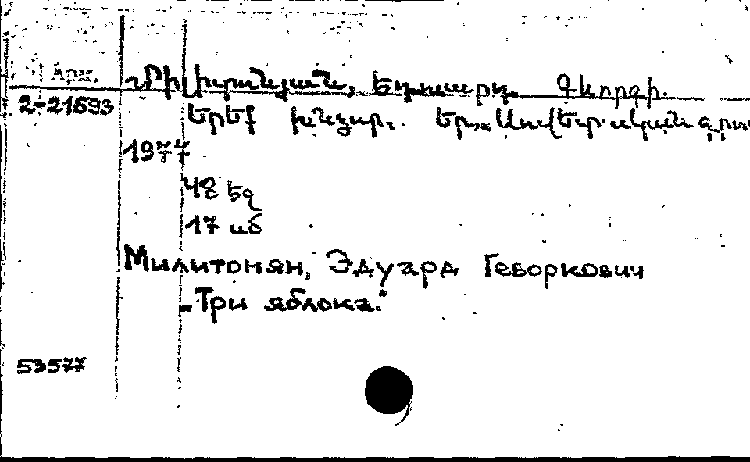 Արմ.
Միլիտոնյան, Էդուարդ Գևորգի.
2-21693
Երեք խնձոր. Եր., Սովետ. գրող
1977
48 էջ
17 սմ
Милитонян, Эдуард Геворкович
„Три яблока.“
53577